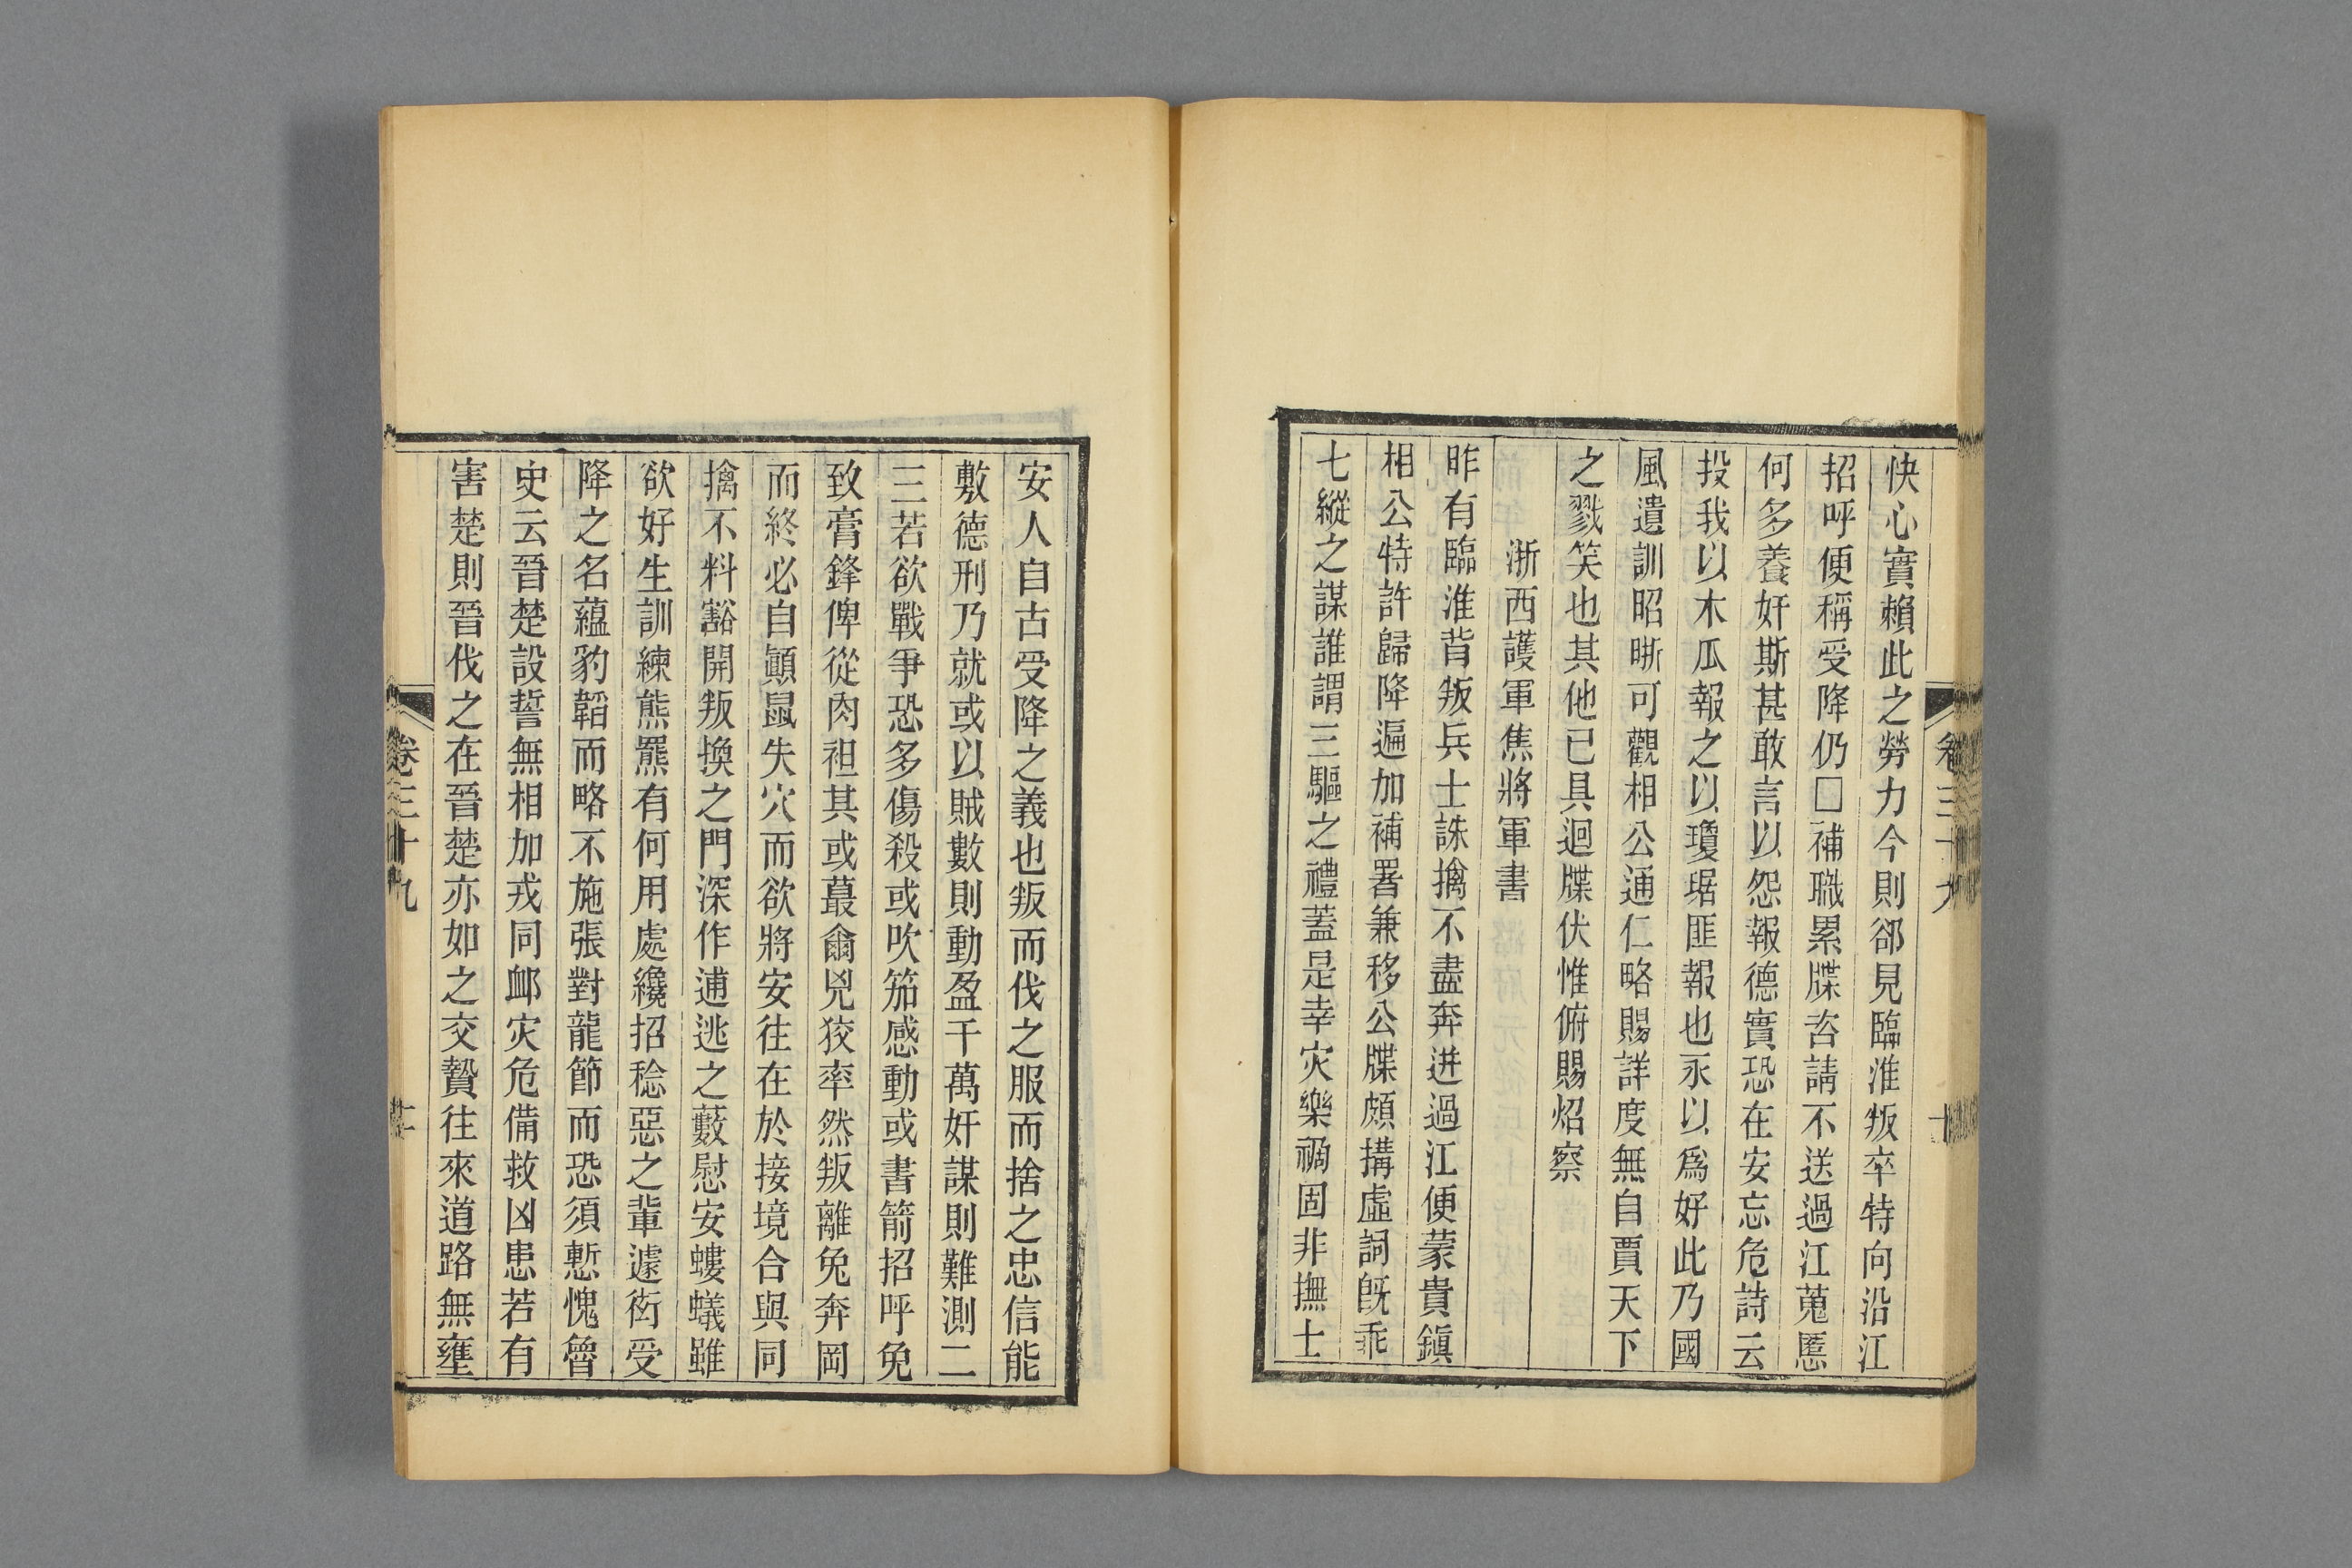 快心實賴此之勞力今則郤見臨淮叛卒特向沿江
招呼便稱受降仍□補職累牒咨請不送過江蒐慝
何多養奸斯甚敢言以怨報德實恐在安忘危詩云
投我以木瓜報之以瓊琚匪報也永以爲好此乃國
風遺訓昭晣可觀相公通仁略賜詳度無自賈天下
之戮笑也其他已具迴牒伏惟俯賜炤察
浙西護軍焦將軍書
昨有臨淮背叛兵士誅擒不盡奔迸過江便蒙貴鎭
相公特許歸降遍加補署兼移公牒頗搆虛詞旣乖
七縱之謀誰謂三驅之禮蓋是幸灾樂禍固非撫士
卷三十九
十
安人自古受降之義也叛而伐之服而捨之忠信能
敷德刑乃就或以賊數數則動盈千萬奸謀則難測二
三若欲戰爭恐多傷殺或吹笳感動或書箭招呼免
致膏鋒俾從肉袒其或蕞爾兇狡率然叛離兔奔岡
而終必自顚鼠失穴而欲將安往在於接境合與同
擒不料豁開叛換之門深作逋逃之藪慰安螻蟻雖
欲好生訓練熊羆有何用處纔招稔惡之輩遽衒受
降之名蘊豹韜而略不施張對龍節而恐須慙愧魯
史云晉楚設誓無相加戎同邺灾危備救凶患若有
害楚則晉伐之在晉楚亦如之交贄往來道路無壅
卷三十九